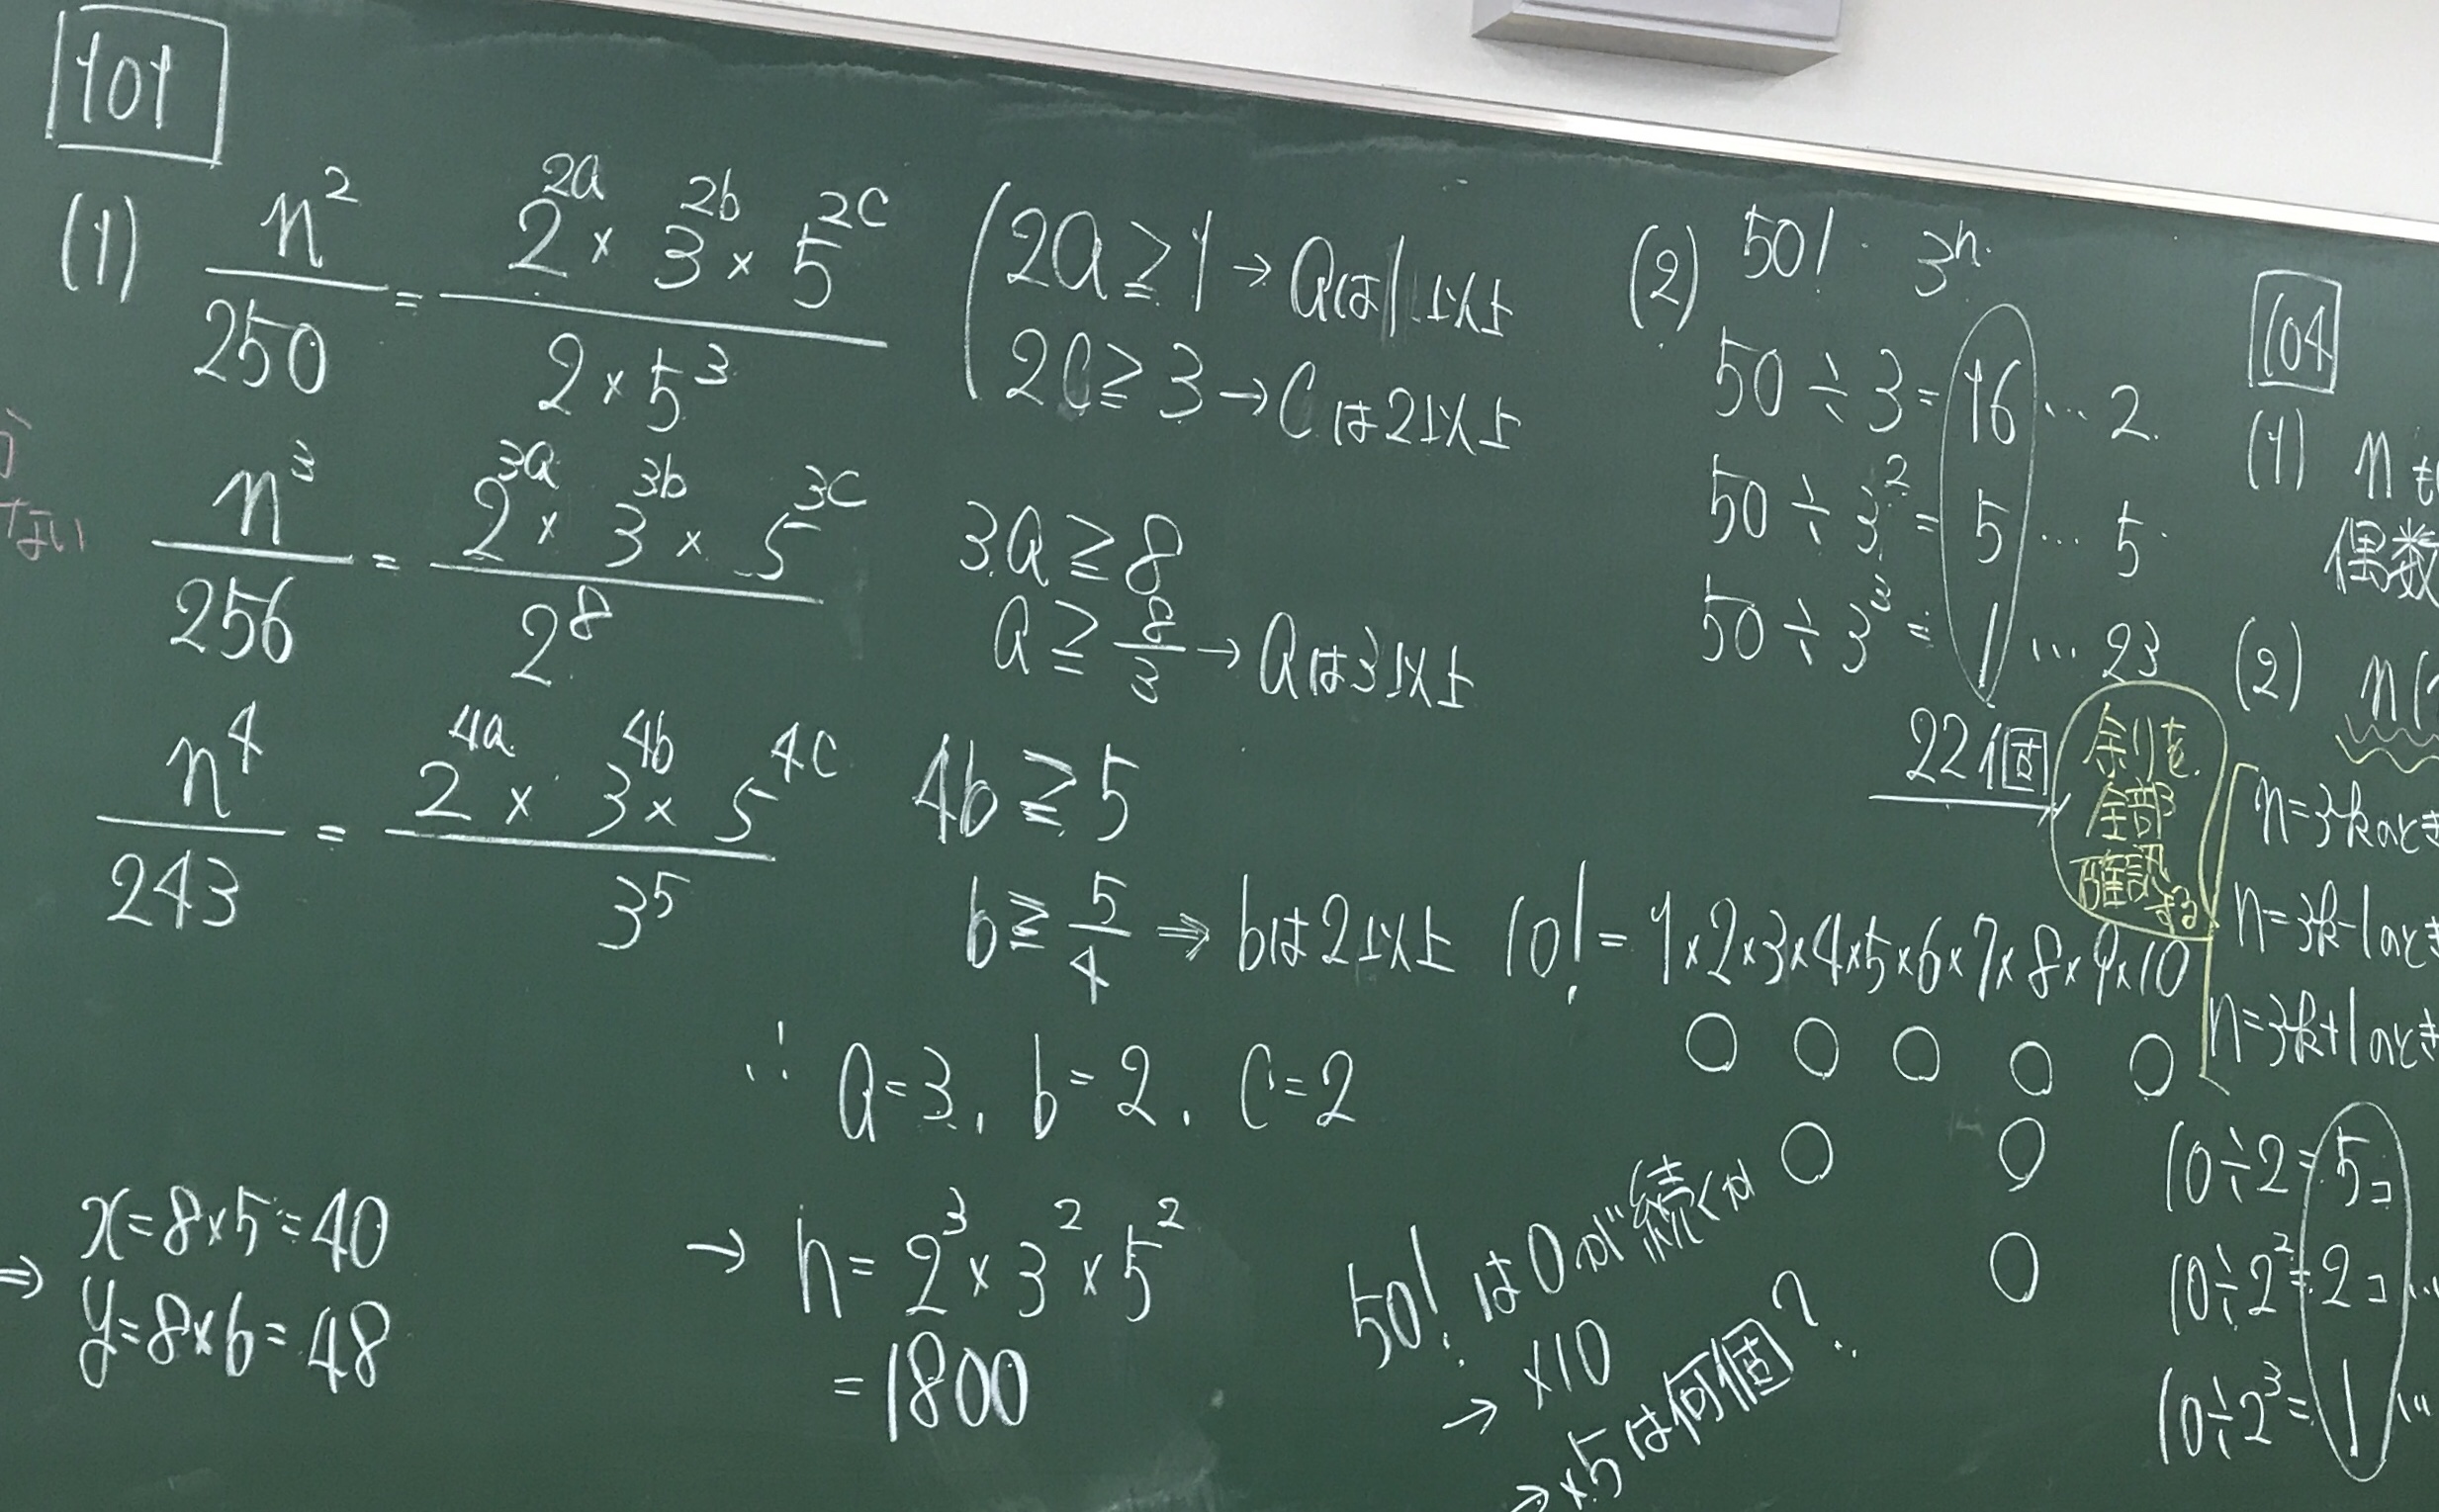 101
(1) n²/250 = 2^2a × 3^2b × 5^2c / 2×5³
2a ≧ 1 → aは1以上
2c ≧ 3 → cは2以上
n³/256 = 2^3a × 3^3b × 5^3c / 2⁸
3a ≧ 8
a ≧ 8/3 → aは3以上
n⁴/243 = 2^4a × 3^4b × 5^4c / 3⁵
4b ≧ 5
b ≧ 5/4 ⇒ bは2以上
∴ a=3, b=2, c=2
→ n = 2³×3²×5²
= 1800
ない
⇒ x=8×5=40
y=8×6=48
(2) 50! 3ⁿ
50÷3=16…2
50÷3²=5…5
50÷3³=1…23
22個
余りを
全部
確認する
10! = 1×2×3×4×5×6×7×8×9×10
○ ○ ○ ○ ○
○ ○
○
10÷2=5コ
10÷2²=2コ…
10÷2³=1…
50!は0が続くか
→ ×10
→ ×5は何個?
104
(1) n
偶数
(2) n(
n=3kのとき
n=3k-1のとき
n=3k+1のとき